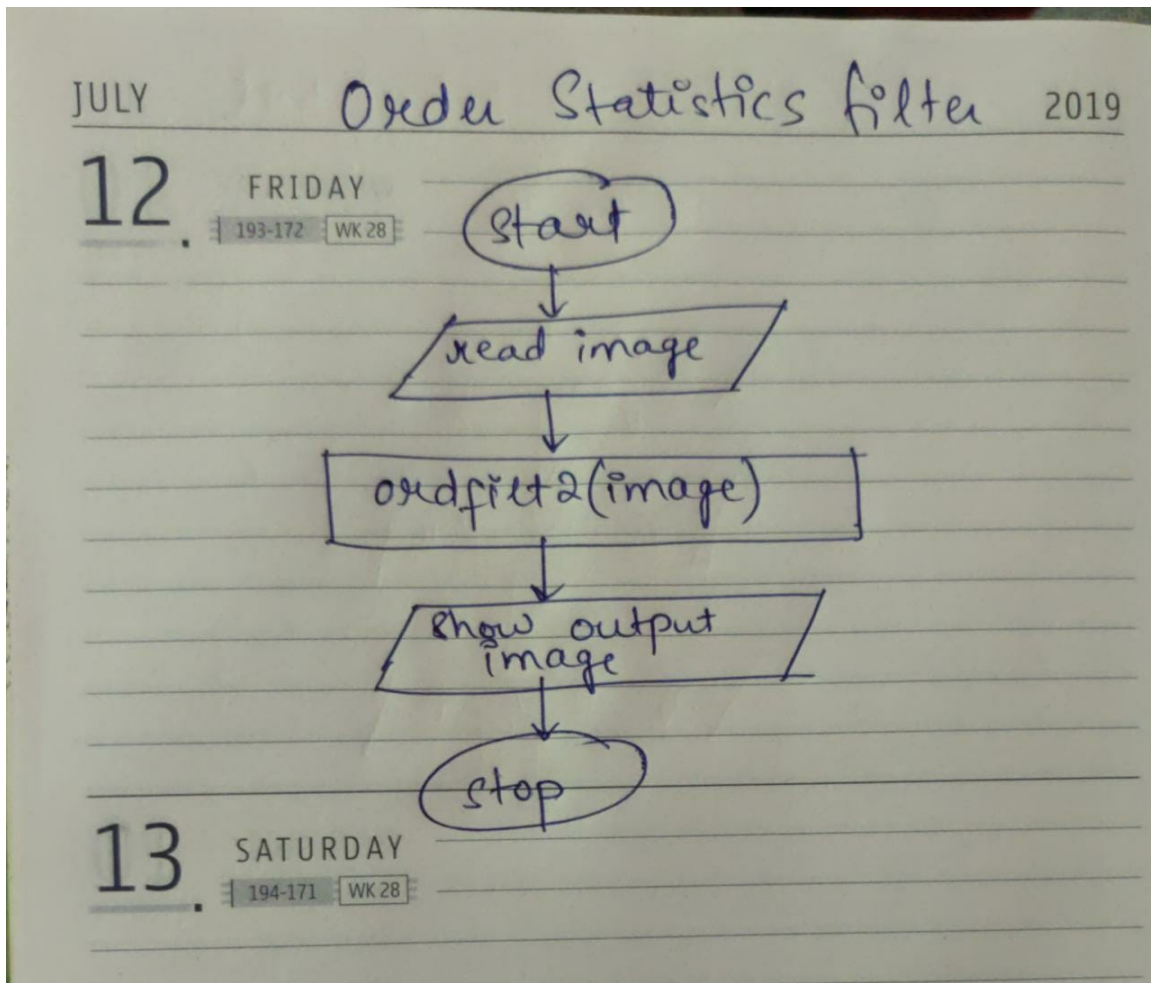 JULY Order Statistics filter 2019
12. FRIDAY
193-172 WK 28
start
read image
ordfilt2(image)
show output
image
stop
13. SATURDAY
194-171 WK 28